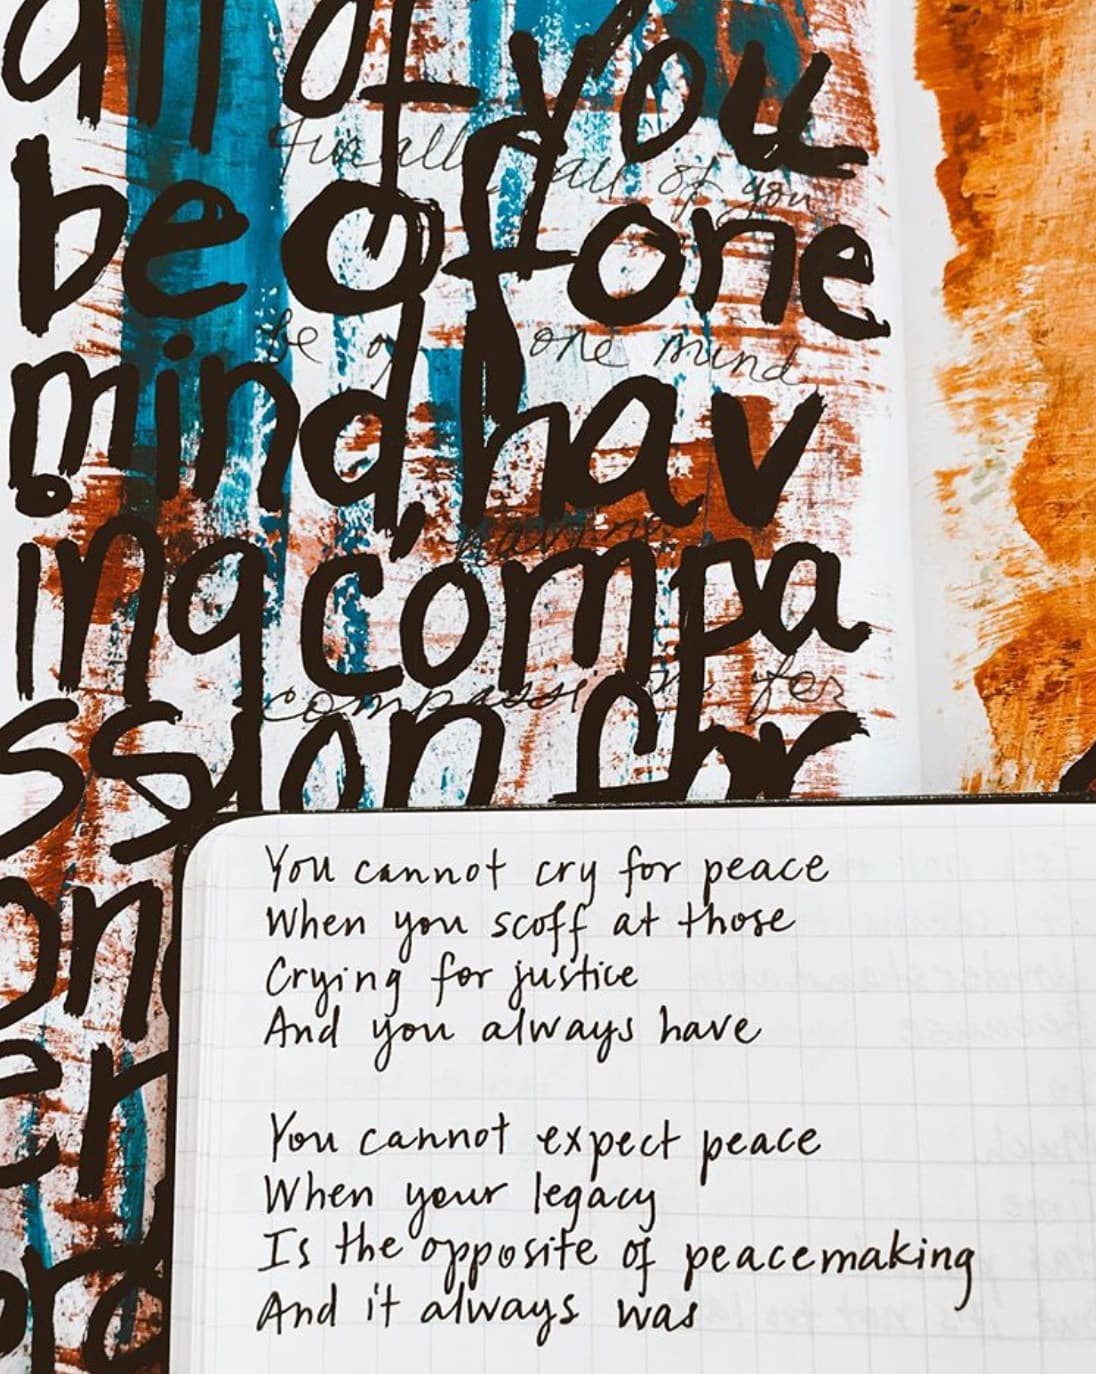 all of you
Finally, all of you
be of one
be of one mind,
mind, hav
having
ing compa
compassion for
ssion for
on
er
ord
You cannot cry for peace
When you scoff at those
Crying for justice
And you always have
You cannot expect peace
When your legacy
Is the opposite of peacemaking
And it always was